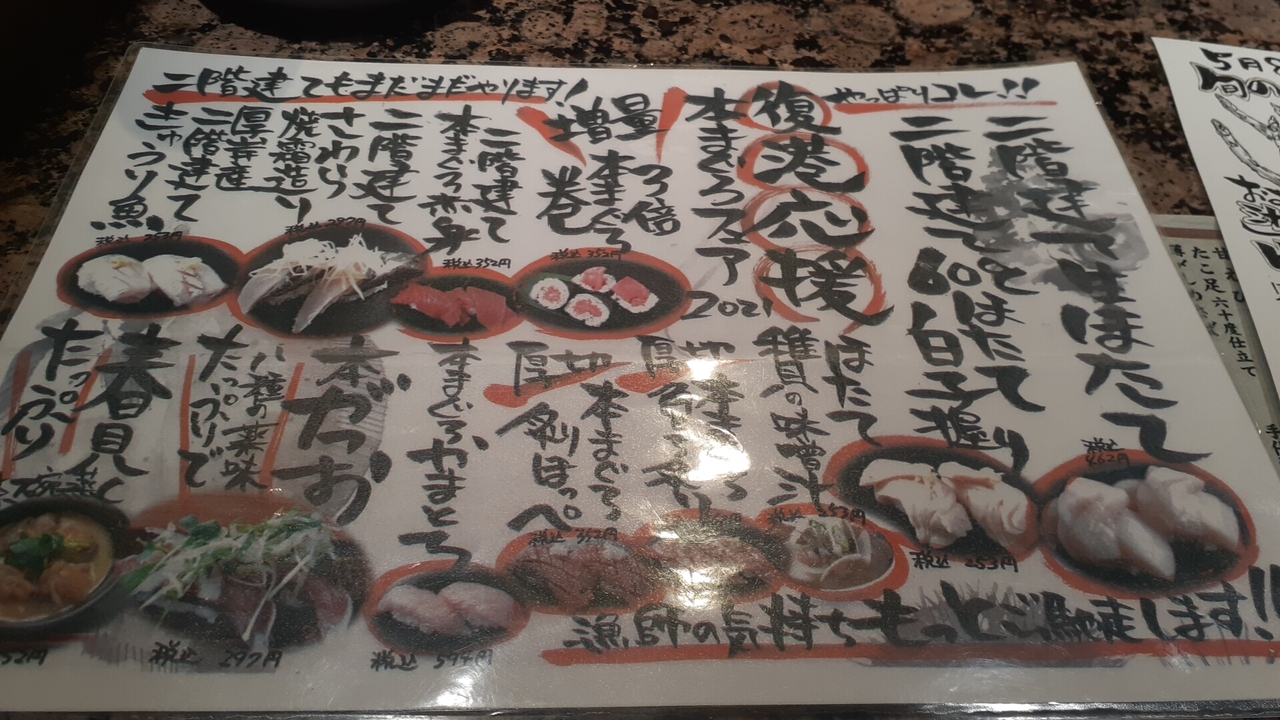 やっぱりコレ!!
二階建て生ほたて
税込
462円
二階建て
60℃
とはたて
白子握り
税込 253円
復港応援
本まぐろフェア
2021
ほたて
稚貝の味噌汁
増量
1.3倍
本まぐろ
巻
税込 352円
二階建て
本まぐろ赤身
税込352円
二階建て
さわら
焼霜造り
税込 297円
厚岸産
二階建て
きゅうり魚
税込 297円
二階建てもまだまだやります!
厚切
厚切
本まぐろ
剥ぽっぺ
税込 352円
本まぐろかまとろ
税込 594円
本がつお
八種の薬味
たっぷりで
税込 297円
春見
たっぷり
52円
漁師の気持ちもっとご馳走します!!
5月
旬の
たこ足六十度仕立て